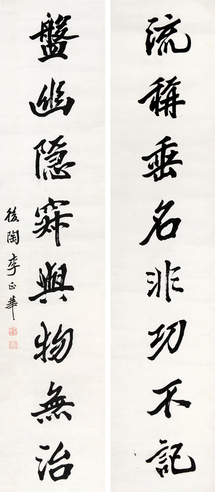 流稱垂名非功不記
盤幽隱與物無治
後陶李正華